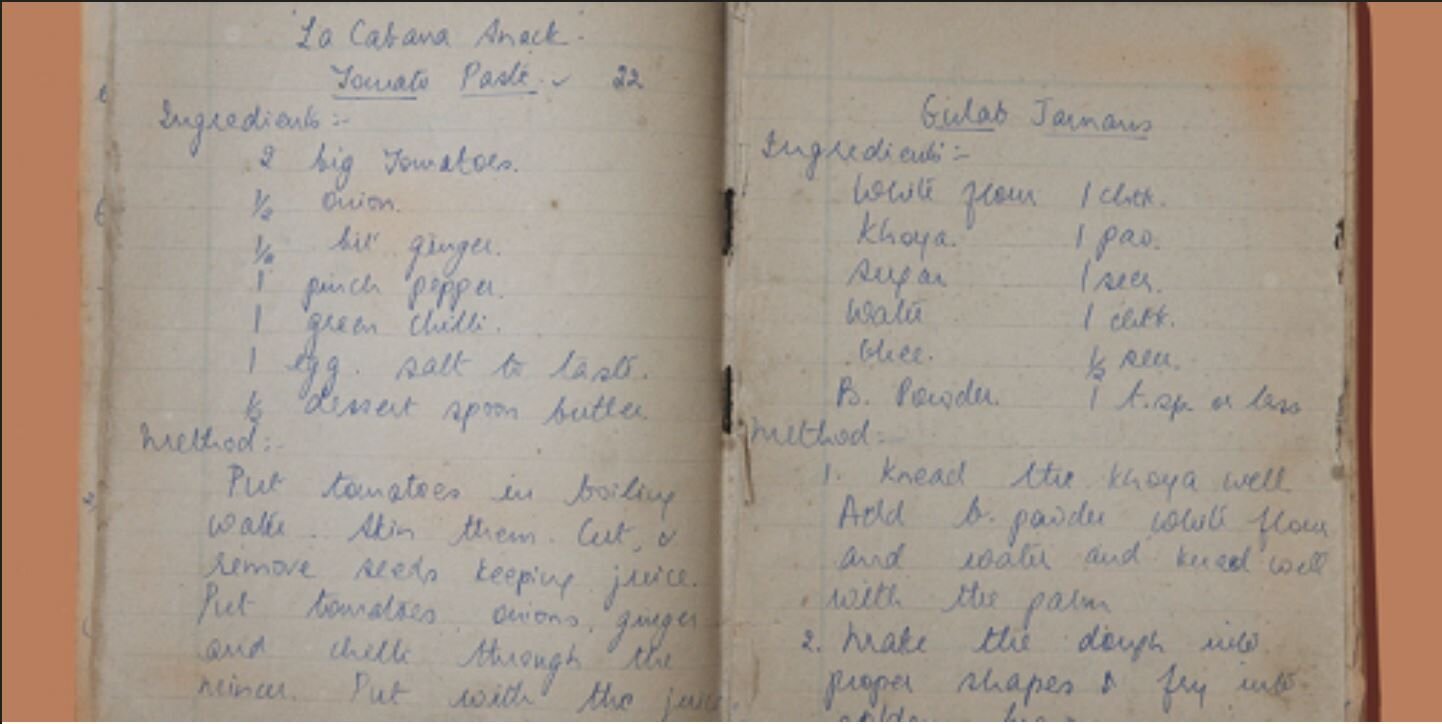 La Cabana Snack.
Tomato Paste. ✓ 22
Ingredients :-
2 big Tomatoes.
1/2 onion.
bit ginger.
1 pinch pepper.
1 green chilli.
1 egg. salt to taste.
1/2 dessert spoon butter.
Method :-
Put tomatoes in boiling
water. Skin them. Cut, &
remove seeds keeping juice.
Put tomatoes, onions, ginger
and chilli through the
mincer. Put with the juice
Gulab Jamans
Ingredients :-
White flour 1 chtk.
Khoya. 1 pao.
Sugar 1 seer.
Water 1 chtk.
Ghee. 1/2 seer.
B. Powder. 1 t.sp. or less
Method :-
1. Knead the khoya well
Add b. powder white flour
and water and knead well
with the palm
2. Make the dough into
proper shapes & fry into
golden